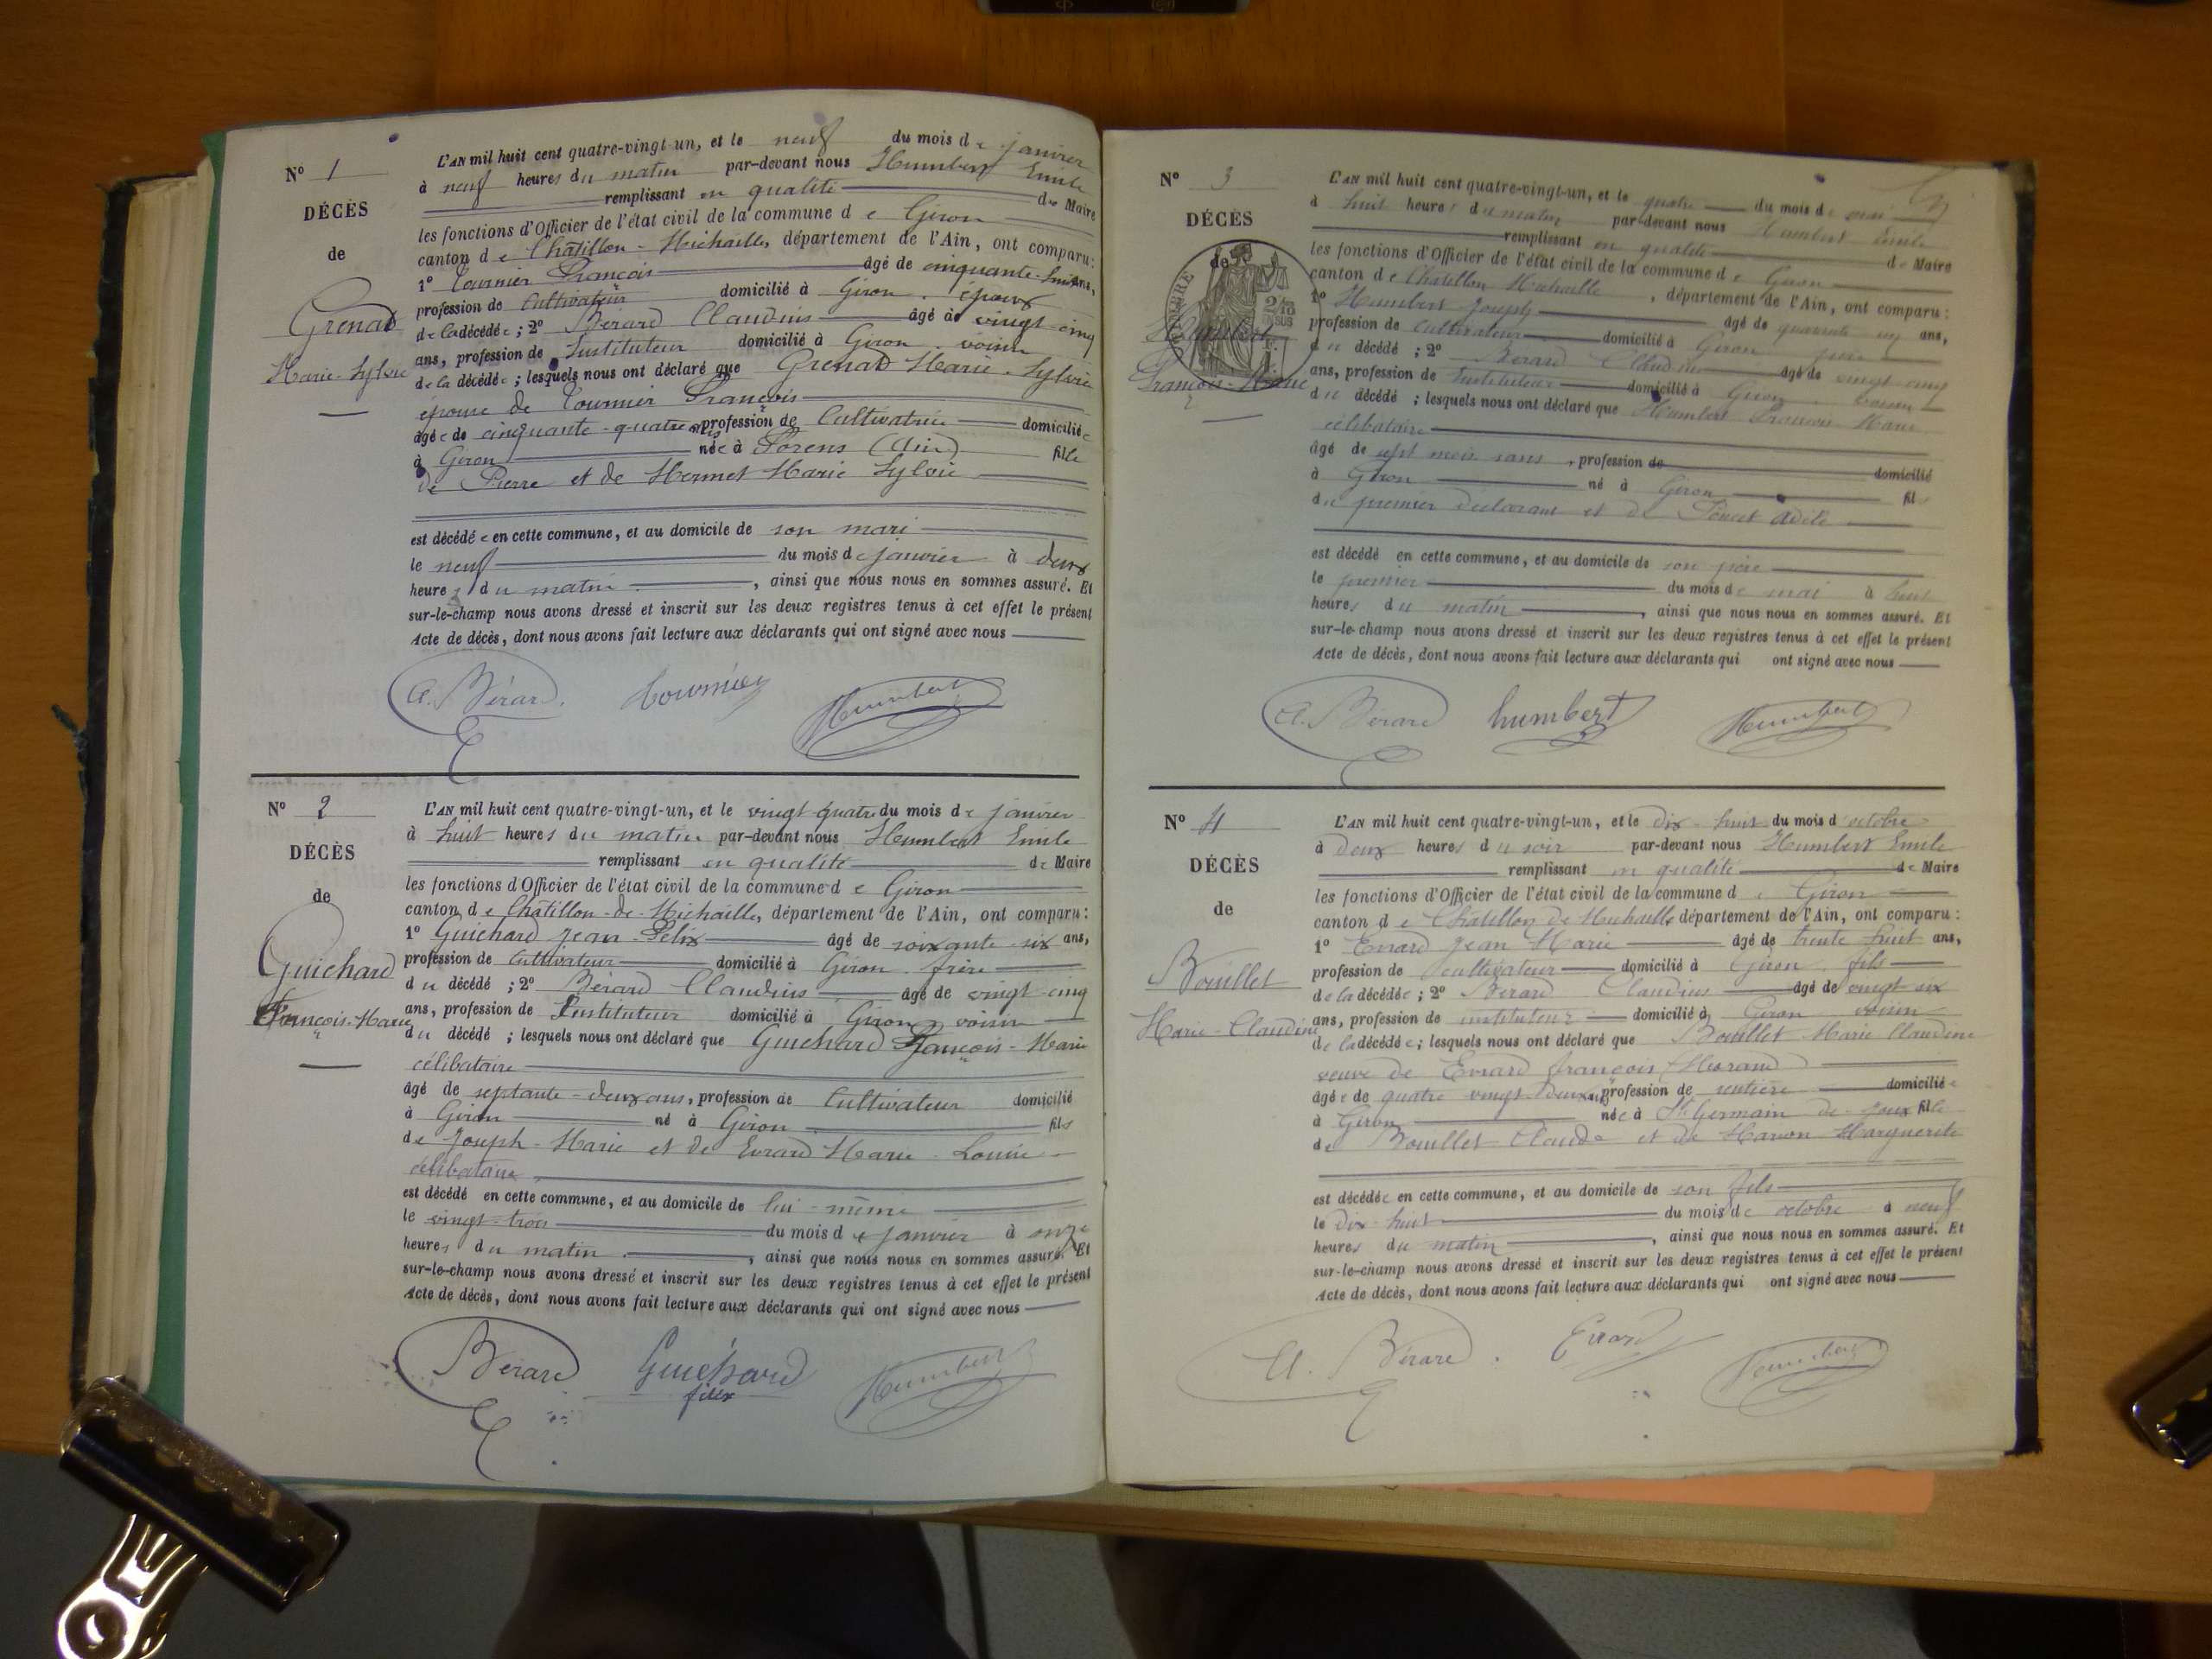 N° 1
DÉCÈS
de
Grenad
Marie-Sylvie
L'AN mil huit cent quatre-vingt-un, et le neuf du mois de janvier
à neuf heures du matin par-devant nous Humbert Emile
remplissant en qualité de Maire
les fonctions d'Officier de l'état civil de la commune de Giron
canton de Châtillon-Michaille, département de l'Ain, ont comparu:
1° Tournier François âgé de cinquante-huit ans,
profession de Cultivateur domicilié à Giron. époux
de la décédée; 2° Bérard Claudius âgé de vingt-cinq
ans, profession de Instituteur domicilié à Giron. voisin
de la décédée; lesquels nous ont déclaré que Grenad Marie-Sylvie
épouse de Tournier François
âgée de cinquante-quatre ans profession de Cultivatrice domiciliée
à Giron née à (Ain) fille
de Pierre et de Hermet Marie Sylvie
est décédée en cette commune, et au domicile de son mari
le neuf du mois de janvier à deux
heures du matin, ainsi que nous nous en sommes assuré. Et
sur-le-champ nous avons dressé et inscrit sur les deux registres tenus à cet effet le présent
Acte de décès, dont nous avons fait lecture aux déclarants qui ont signé avec nous
C. Bérard. Tournier Humbert
N° 2
DÉCÈS
de
Guichard
François-Marie
L'AN mil huit cent quatre-vingt-un, et le vingt-quatre du mois de janvier
à huit heures du matin par-devant nous Humbert Emile
remplissant en qualité de Maire
les fonctions d'Officier de l'état civil de la commune de Giron
canton de Châtillon-de-Michaille, département de l'Ain, ont comparu:
1° Guichard Jean-Félix âgé de soixante-six ans,
profession de Cultivateur domicilié à Giron. frère
du décédé; 2° Bérard Claudius âgé de vingt-cinq
ans, profession de Instituteur domicilié à Giron, voisin
du décédé; lesquels nous ont déclaré que Guichard François-Marie
célibataire
âgé de septante-deux ans, profession de Cultivateur domicilié
à Giron né à Giron fils
de Joseph-Marie et de Evrard Marie-Louise
célibataire
est décédé en cette commune, et au domicile de lui-même
le vingt-trois du mois de janvier à onze
heures du matin, ainsi que nous nous en sommes assuré. Et
sur-le-champ nous avons dressé et inscrit sur les deux registres tenus à cet effet le présent
Acte de décès, dont nous avons fait lecture aux déclarants qui ont signé avec nous
Bérard Guichard félix Humbert
N° 3
DÉCÈS
de
Humbert
François-Marie
L'AN mil huit cent quatre-vingt-un, et le quatre du mois de mai
à huit heures du matin par-devant nous Humbert Emile
remplissant en qualité de Maire
les fonctions d'Officier de l'état civil de la commune de Giron
canton de Châtillon Michaille, département de l'Ain, ont comparu:
1° Humbert Joseph âgé de quarante un ans,
profession de Cultivateur domicilié à Giron père
du décédé; 2° Bérard Claudius âgé de vingt-cinq
ans, profession de Instituteur domicilié à Giron. voisin
du décédé; lesquels nous ont déclaré que Humbert François Marie
célibataire
âgé de sept mois sans, profession de domicilié
à Giron né à Giron fils
du premier déclarant et de Adèle
est décédé en cette commune, et au domicile de son père
le premier du mois de mai à huit
heures du matin, ainsi que nous nous en sommes assuré. Et
sur-le-champ nous avons dressé et inscrit sur les deux registres tenus à cet effet le présent
Acte de décès, dont nous avons fait lecture aux déclarants qui ont signé avec nous
C. Bérard humbert Humbert
N° 4
DÉCÈS
de
Bouillet
Marie-Claudine
L'AN mil huit cent quatre-vingt-un, et le dix-huit du mois d'octobre
à deux heures du soir par-devant nous Humbert Emile
remplissant en qualité de Maire
les fonctions d'Officier de l'état civil de la commune de Giron
canton de Châtillon de Michaille département de l'Ain, ont comparu:
1° Evrard Jean Marie âgé de trente huit ans,
profession de cultivateur domicilié à Giron. fils
de la décédée; 2° Bérard Claudius âgé de vingt six
ans, profession de instituteur domicilié à Giron voisin
de la décédée; lesquels nous ont déclaré que Bouillet Marie Claudine
veuve de Evrard françois
âgée de quatre vingt deux ans profession de rentière domiciliée
à Giron née à St Germain de Joux fille
de Bouillet Claude et de Marguerite
est décédée en cette commune, et au domicile de son fils
le dix-huit du mois de octobre à neuf
heures du matin, ainsi que nous nous en sommes assuré. Et
sur-le-champ nous avons dressé et inscrit sur les deux registres tenus à cet effet le présent
Acte de décès, dont nous avons fait lecture aux déclarants qui ont signé avec nous
C. Bérard. Evrard Humbert